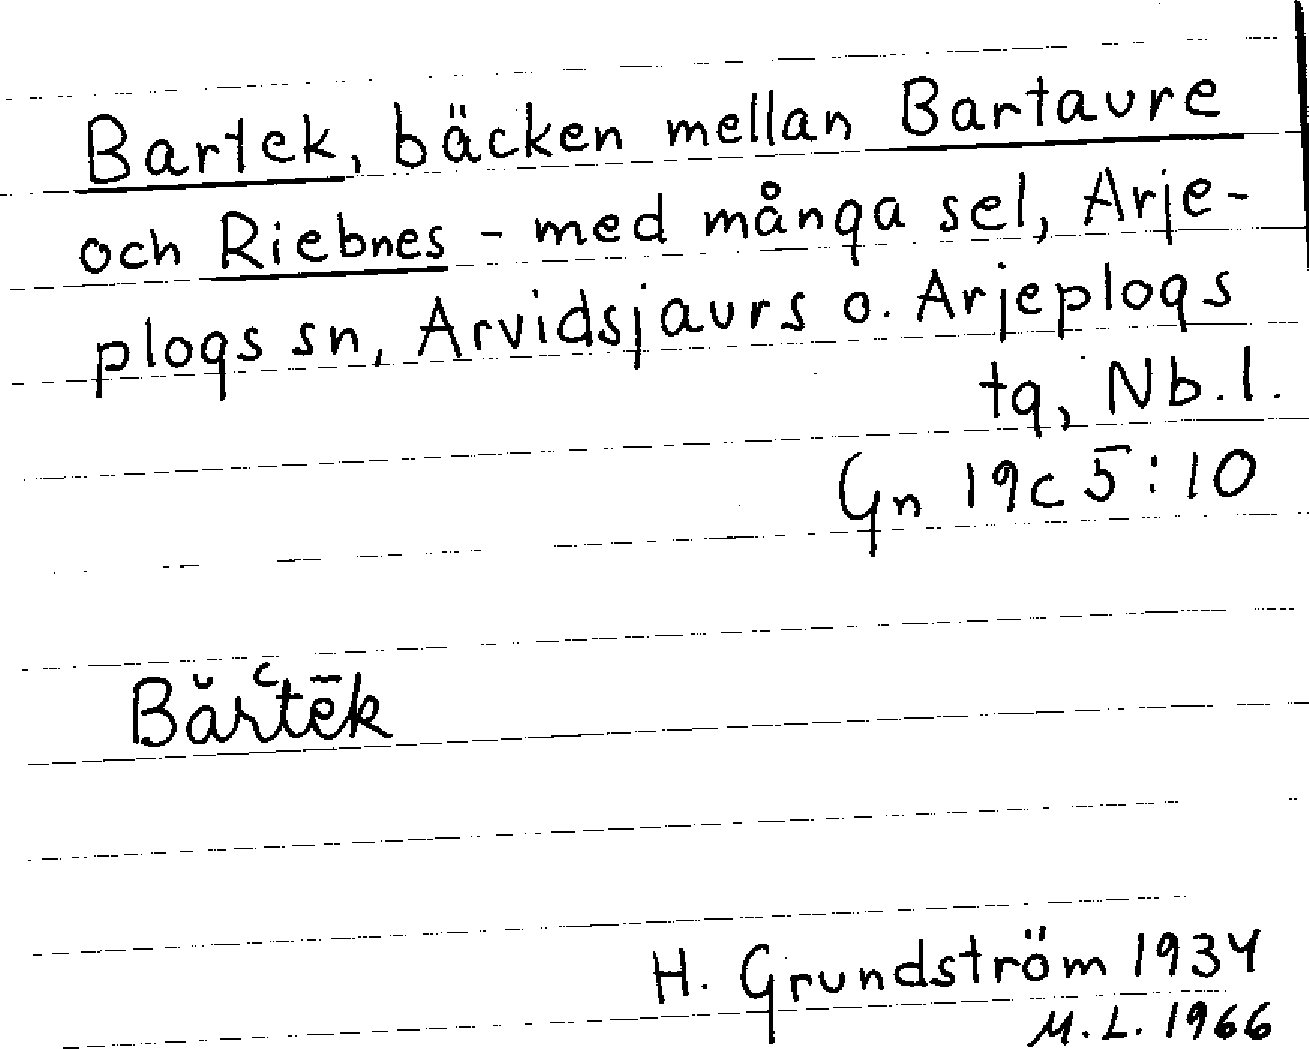 Bartek, bäcken mellan Bartaure
och Riebnes - med många sel, Arje-
plogs sn, Arvidsjaurs o. Arjeplogs
tg, Nb.l.
Gn 19c 5:10
Bărʿtēk
H. Grundström 1934
M.L. 1966